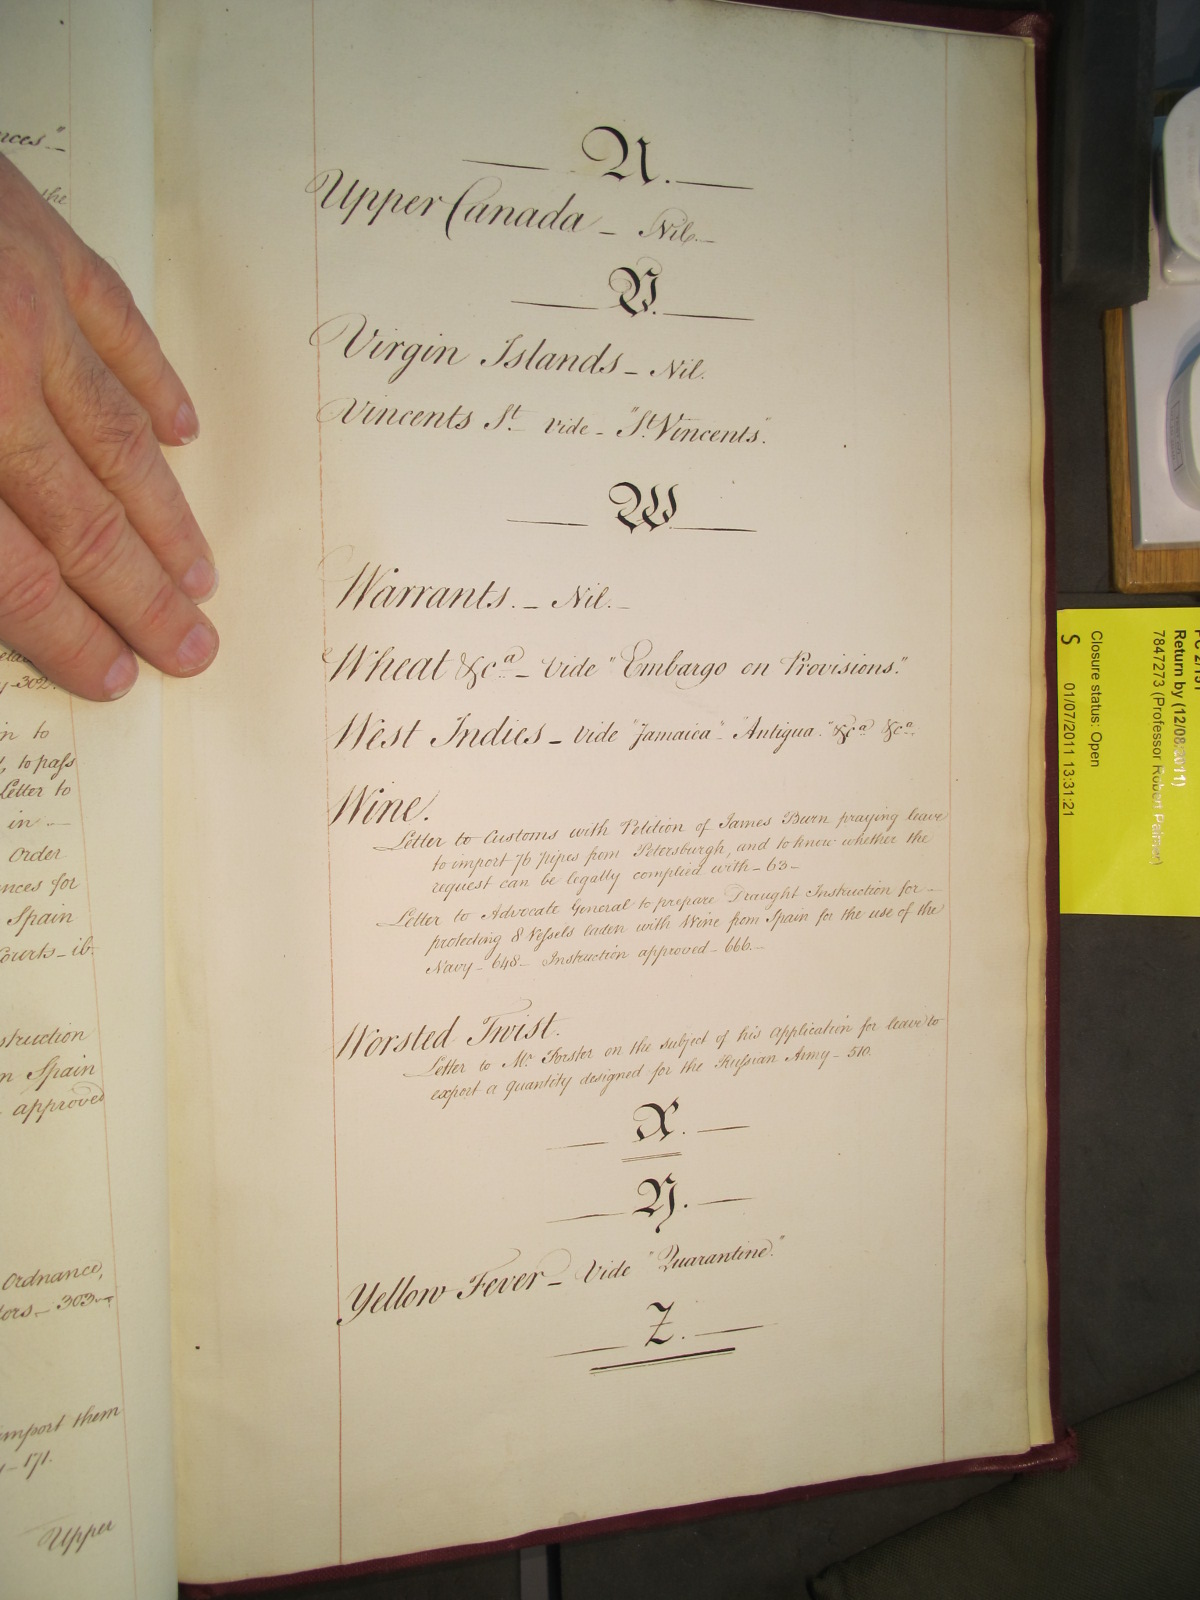 nces"
the
y-302.
n to
, to pass
Letter to
in —
Order
nces for
Spain
Courts - ib.
struction
n Spain
approved
Ordnance,
tors - 303 -
import them
- 171.
Upper
U.
Upper Canada - Nil. -
V.
Virgin Islands - Nil.
Vincents St. vide - "St. Vincents".
W
Warrants. - Nil. -
Wheat &c.a - Vide "Embargo on Provisions."
West Indies - Vide "Jamaica" "Antigua." &c.a &c.a
Wine.
Letter to Customs with Petition of James Burn praying leave
to import 76 pipes from Petersburgh, and to know whether the
request can be legally complied with - 63 -
Letter to Advocate General to prepare Draught Instruction for -
protecting 8 Vessels laden with Wine from Spain for the use of the
Navy - 648 - Instruction approved - 666. -
Worsted Twist.
Letter to Mr. Forster on the subject of his application for leave to
export a quantity designed for the Russian Army - 510.
X.
Y.
Yellow Fever - Vide "Quarantine."
Z.
PC 2/151
Return by (12/08/2011)
7847273 (Professor Robert Palmer)
Closure status: Open
S 01/07/2011 13:31:21